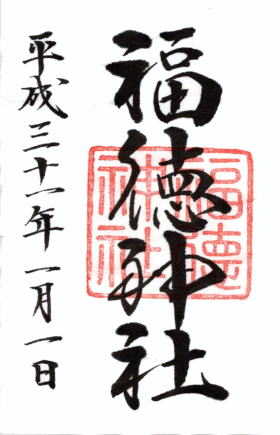 福徳神社
平成三十一年一月一日
福徳
神社